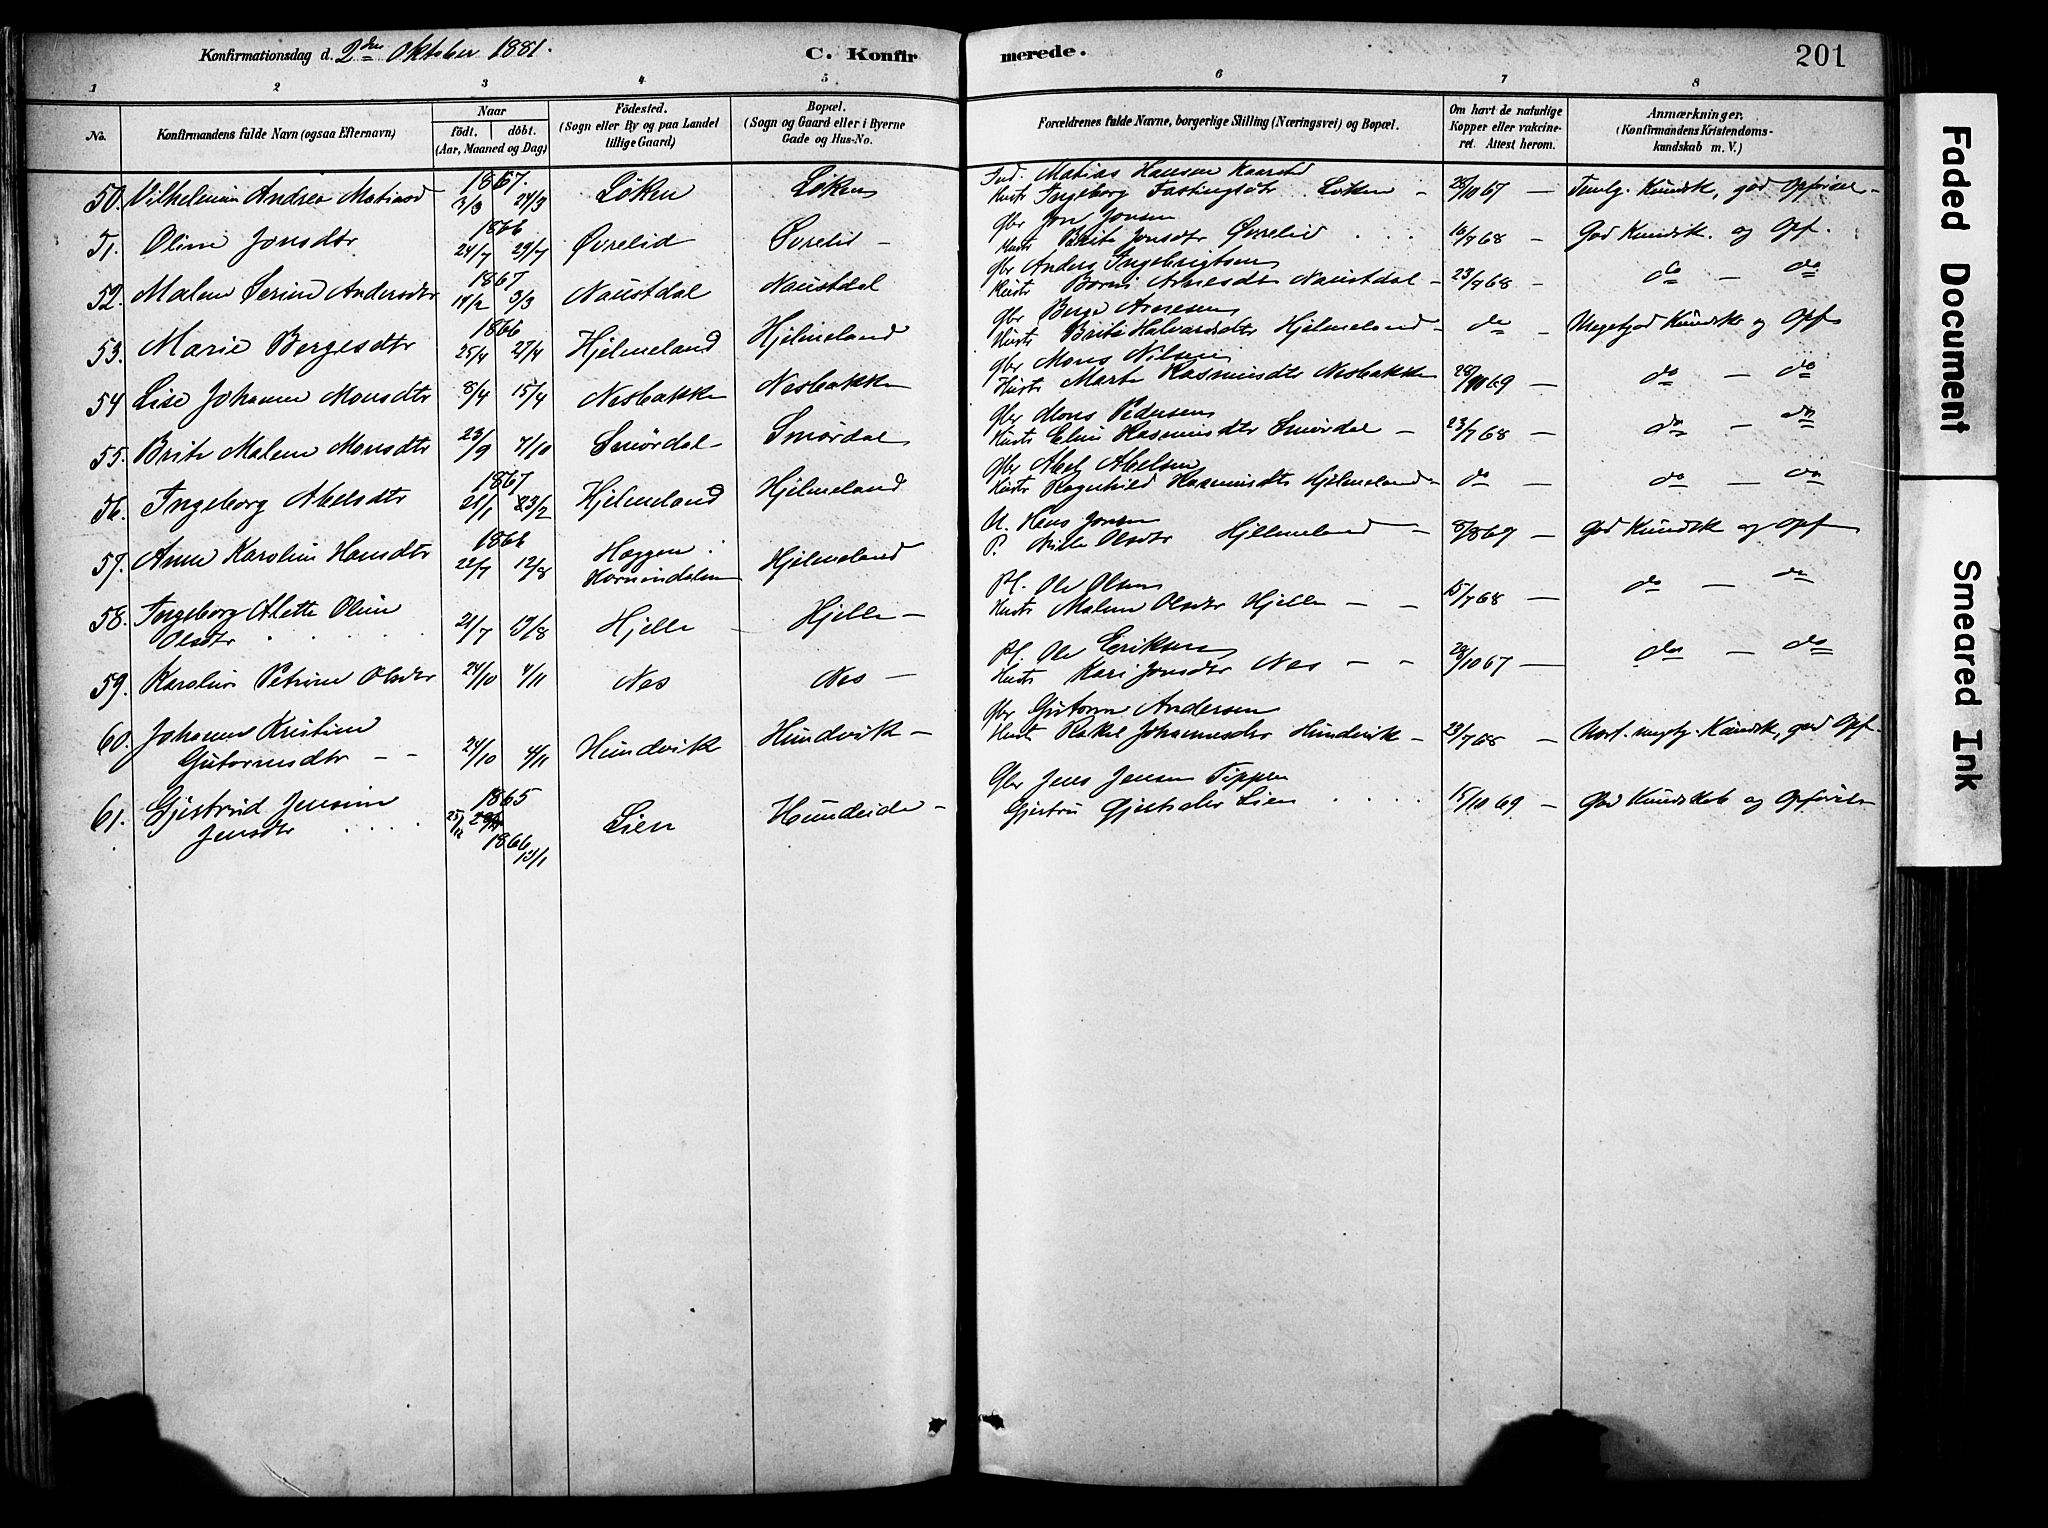 Konfirmationsdag d. 2den Oktober 1881. C. Konfirmerede. 201
1 2 3 4 5 6 7 8
No. Konfirmandens fulde Navn (ogsaa Efternavn) Naar födt. döbt. (Aar, Maaned og Dag) Födested. (Sogn eller By og paa Landet tillige Gaard) Bopæl. (Sogn og Gaard eller i Byerne Gade og Hus-No. Forældrenes fulde Navne, borgerlige Stilling (Næringsvei) og Bopæl. Om havt de naturlige Kopper eller vakcineret. Attest herom. Anmærkninger. (Konfirmandens Kristendomskundskab m. V.)
1867. Ind. Matias Hansen
50. Vilhelmine Andrea Matiasd 2/3 24/3 Løken Løken Hust Ingeborg Fastingsdtr Løken - 28/10 67 - Temlg. Kundsk, god Opførsel -
1866 Gbr Jon Jonsen
51. Oline Jonsdtr 24/7 29/7 Øvrelid Øvrelid - Hust Brite Jonsdtr Øvrelid 16/7 68 - God Kundsk. og Opf.
1867 Gbr Anders Ingebrigtsen
52. Malene Serine Andersdtr 18/2 3/3 Naustdal Naustdal Hust Arnesdt Naustdal - 23/7 68 - do - do
1866 Gbr Berge Arnesen
53. Marie Bergesdtr 25/4 27/4 Hjelmeland Hjelmeland Hust Brite Halvardsdtr Hjelmeland - do - Megetgod Kundsk og Opf
Gbr Mons Nilsen
54 Lise Johanne Monsdtr 8/4 15/4 Nesbakke Nesbakke Hust Marte Rasmusdtr Nesbakke 69 - do - do
Gbr Mons Pedersen
55. Brite Malene Monsdtr 23/9 7/10 Smørdal Smørdal Hust Eline Rasmusdtr Smørdal - 23/7 68 - do - do
1867 Gbr Abel Abelsen
56. Ingeborg Abelsdtr 21/1 23/2 Hjelmeland Hjelmeland Hust Ragnhild Rasmusdtr Hjelmeland - do - do - do
U. Hans Jonsen
57. Anne Karoline Hansdtr 22/7 12/8 Hornindalen Hjelmeland P. Olsdtr Hjelmeland - 8/8 69 - God Kundsk og Opf
Pl. Ole Olsen
58. Ingeborg Alette Oline 21/7 19/8 Hjelle Hjelle - Hust Malene Olsdtr Hjelle - - 15/7 68 - do - do
Olsdtr
Pl. Ole Eriksen
59. Karoline Petrine Olsdtr 24/10 4/11 Nes Nes - Hust Kari Jonsdtr Nes - - 28/10 67 - do - do
Gbr Gutorm Andersen
60. Johanne Kristine 24/10 4/11 Hundvik Hundvik - Hust Rakel Johannesdtr Hundvik - 23/7 68 - megtg. Kundsk, god Opf.
Gutormsdtr - -
1865 Gbr Jens Jensen Tippen
61. Gjertrud Jensine 25/12 Lien Hundeide - Gjertru Gjertsdtr Lien 15/10 69 - God Kundskab og Opførsel
Jensdtr 1866 13/1
Faded Document
Smeared Ink